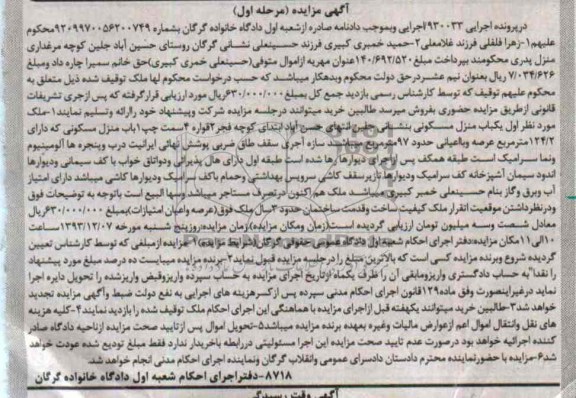 آگهی مزایده (مرحله اول)
درپرونده اجرایی ۹۳۰۰۳۳/اجرایی وبموجب دادنامه صادره ازشعبه اول دادگاه خانواده گرگان بشماره ۹۲۰۹۹۷۰۰۵۶۲۰۰۷۴۹ محکوم
علیهم۱-زهرا فلفلی فرزند غلامعلی۲-حمید خمیری کبیری فرزند حسینعلی نشانی گرگان روستای حسین آباد جلین کوچه مرغداری
منزل پدری محکومند بپرداخت مبلغ ۱۴۰/۶۹۲/۵۲۰عنوان مهریه ازاموال متوفی(حسینعلی خمری کبیری)حق خانم سمیرا چاره داد ومبلغ
۷/۰۳۴/۶۲۶ ریال بعنوان نیم عشردرحق دولت محکوم وبدهکار میباشند که حسب درخواست محکوم لها ملک توقیف شده ذیل متعلق به
محکوم علیهم توقیف که توسط کارشناس رسمی بازدید جمع کل بمبلغ۶۳۰/۰۰۰/۰۰۰ریال مورد ارزیابی قرارگرفته که پس ازجری تشریفات
قانونی ازطریق مزایده حضوری بفروش میرسد طالبین خرید میتوانند درجلسه مزایده شرکت وپیشنهاد خود راارائه وتسلیم نمایند۱-ملک
مورد نظر اول یکباب منزل مسکونی بنشانی جلین انتهای حسن آباد ابتدای کوچه فجر۲قواره ۴سمت چپ۱باب منزل مسکونی که دارای
۱۲۴/۲مترمربع عرصه وباعیانی حدود ۹۷مترمربع میباشد سازه آجری سقف طاق ضربی پوشش نهائی ایرانیت درب وپنجره ها آلومینیوم
ونما سرامیک است طبقه همکف پس ازاجرای دیوارها رها شده است طبقه اول دارای هال پذیرائی ودواتاق خواب با کف سیمانی ودیوارها
اندود سیمان آشپزخانه کف سرامیک ودیوارها تازیرسقف کاشی سرویس بهداشتی وحمام باکف سرامیک ودیوارها کاشی میباشد دارای امتیاز
آب وبرق وگاز بنام حسینعلی خمیر کبیری میباشد ملک هم اکنون درتصرف مستاجر میباشد ومنها البیع است باتوجه به توضیحات فوق
ودرنظرداشتن موقعیت اتقرار ملک کیفیت ساخت وقدمت ساختمان حدود ۳سال ملک فوق(عرصه واعیان امتیازات)بمبلغ ۶۳۰/۰۰۰/۰۰۰ریال
معادل شصت وسه میلیون تومان ارزیابی گردیده است(زمان ومکان مزایده)زمان مزایده:روزپنج شنبه مورخه ۱۳۹۳/۱۲/۰۷ساعت
۱۰الی۱۱مکان مزایده:دفتر اجرای احکام شعبه اول دادگاه عمومی حقوقی گرگان(شرایط مزایده)۱-مزایده ازمبلغی که توسط کارشناس تعیین
گردیده شروع وبرنده مزایده کسی است که بالاترین مبلغ را درجلسه مزایده قبول نماید۲-برنده مزایده میبایست ده درصد مبلغ مورد پیشنهاد
را نقدا"به حساب دادگستری واریزومابقی آن را ظرف یکماه ازتاریخ اجرای مزایده به حساب سپرده واریزوقبض واریزشده را تحویل دایره اجرا
نماید درغیراینصورت وفق ماده۱۲۹قانون اجرای احکام مدنی سپرده پس ازکسرهزینه های اجرایی به نفع دولت ضبط وآگهی مزایده تجدید
خواهد شد۳-طالبین خرید میتوانند یکهفته قبل ازاجرای مزایده با هماهنگی این اجرای احکام ملک توقیف شده را بازدید نمایند۴-کلیه هزینه
های نقل وانتقال اموال اعم ازعوارض مالیات وغیره بعهده برنده مزایده میباشد۵-تحویل اموال پس ازتایید صحت مزایده ازناحیه دادگاه صادر
کننده اجرائیه خواهد بود درصورت عدم تایید صحت مزایده این اجرا مسئولیتی دررابطه باخریدار ندارد فقط مبلغ تودیع شده عودت خواهد
شد۶-مزایده با حضورنماینده محترم دادستان دادسرای عمومی وانقلاب گرگان ونماینده اجرای احکام مدنی انجام خواهد شد.
۸۷۱۸-دفتراجرای احکام شعبه اول دادگاه خانواده گرگان
آگهی وقت رسیدگی